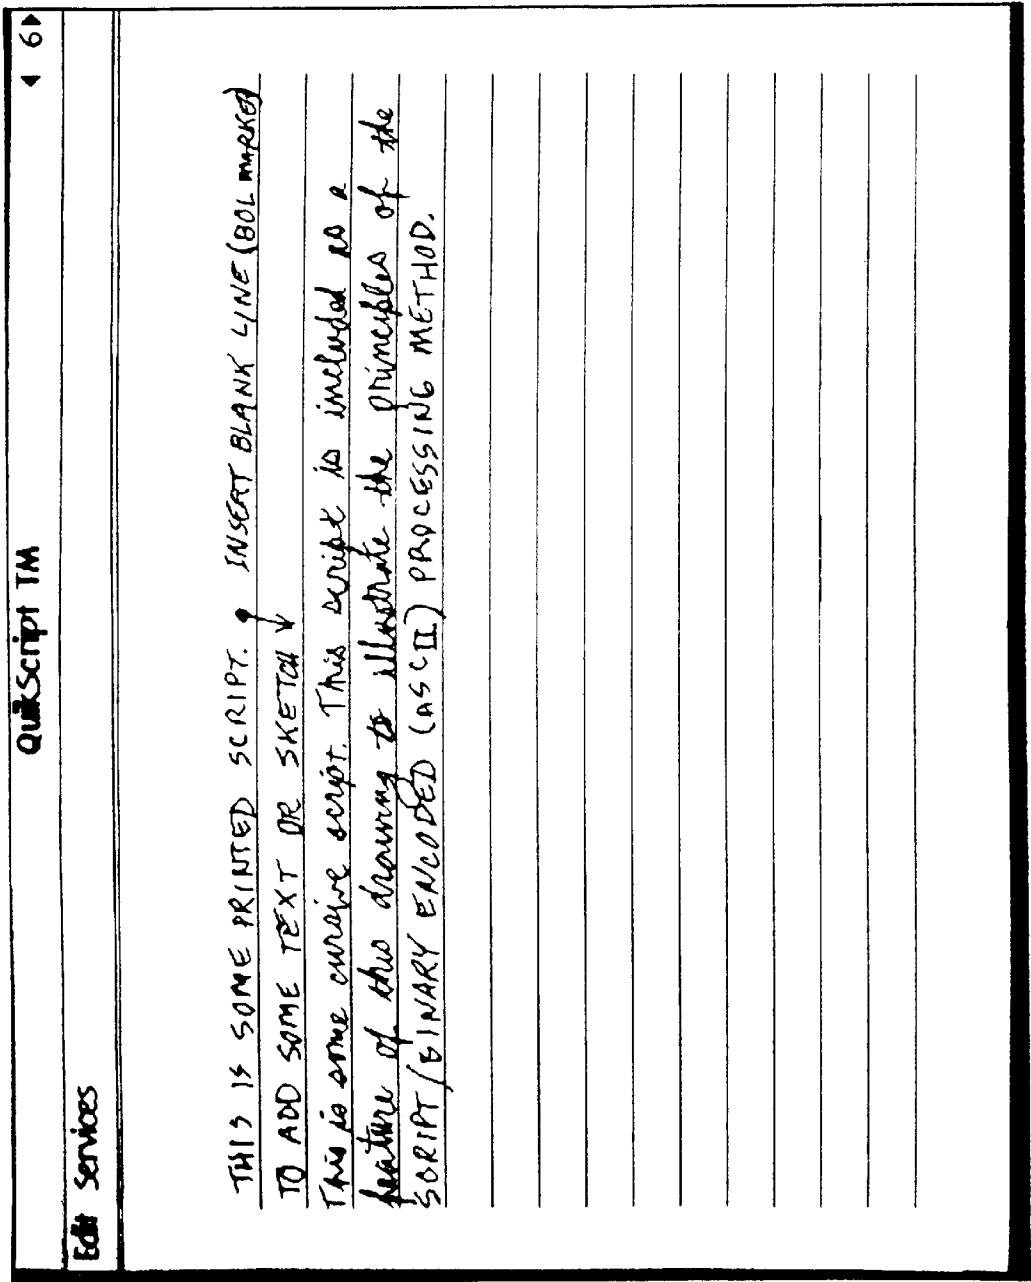 QuikScript TM ◄ 6►
Edit Services
THIS IS SOME PRINTED SCRIPT. INSERT BLANK LINE (BOL MARKER)
TO ADD SOME TEXT OR SKETCH
This is some cursive script. This script is included as a
feature of this drawing to illustrate the principles of the
SCRIPT/BINARY ENCODED (ASCII) PROCESSING METHOD.